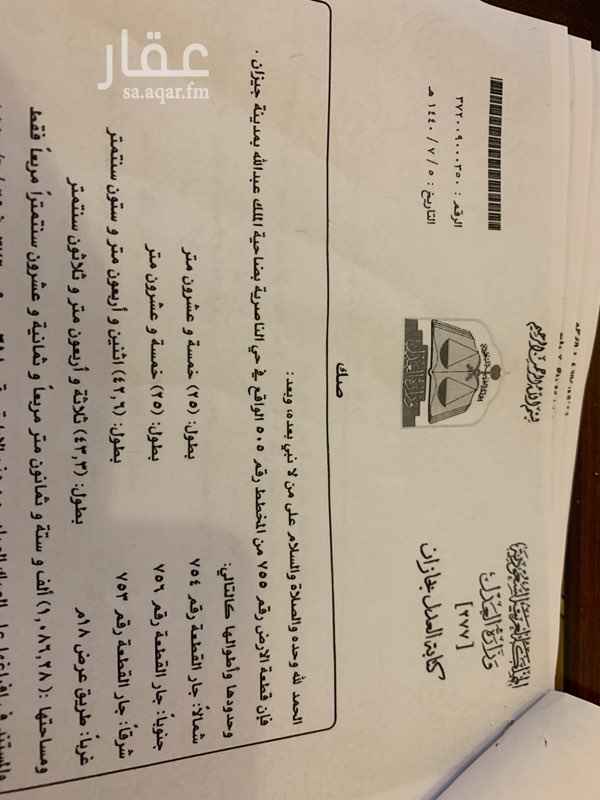 عقار
sa.aqar.fm
بسم الله الرحمن الرحيم
المملكة العربية السعودية
وزارة العدل
[٢٧٧]
كتابة العدل بجازان
الرقم : ٣٧٢٠٠٩٠٠٠٣٥٠
التاريخ : ٥ / ٧ / ١٤٤٠ هـ
صك
الحمد لله وحده والصلاة والسلام على من لا نبي بعده، وبعد:
فإن قطعة الارض رقم ٧٥٥ من المخطط رقم ٥٠٥ الواقع في حي الناصرية بضاحية الملك عبدالله بمدينة جيزان .
وحدودها وأطوالها كالتالي:
شمالاً: جار القطعة رقم ٧٥٤ بطول: (٢٥) خمسة و عشرون متر
جنوباً: جار القطعة رقم ٧٥٦ بطول: (٢٥) خمسة و عشرون متر
شرقاً: جار القطعة رقم ٧٥٣ بطول: (٤٢,٦) اثنين و أربعون متر و ستون سنتمتر
غرباً: طريق عرض ١٨م بطول: (٤٣,٣) ثلاثة و أربعون متر و ثلاثون سنتمتر
ومساحتها :( ١,٠٨٦,٢٨) ألف و ستة و ثمانون متر مربعاً و ثمانية و عشرون سنتمتراً مربعاً فقط